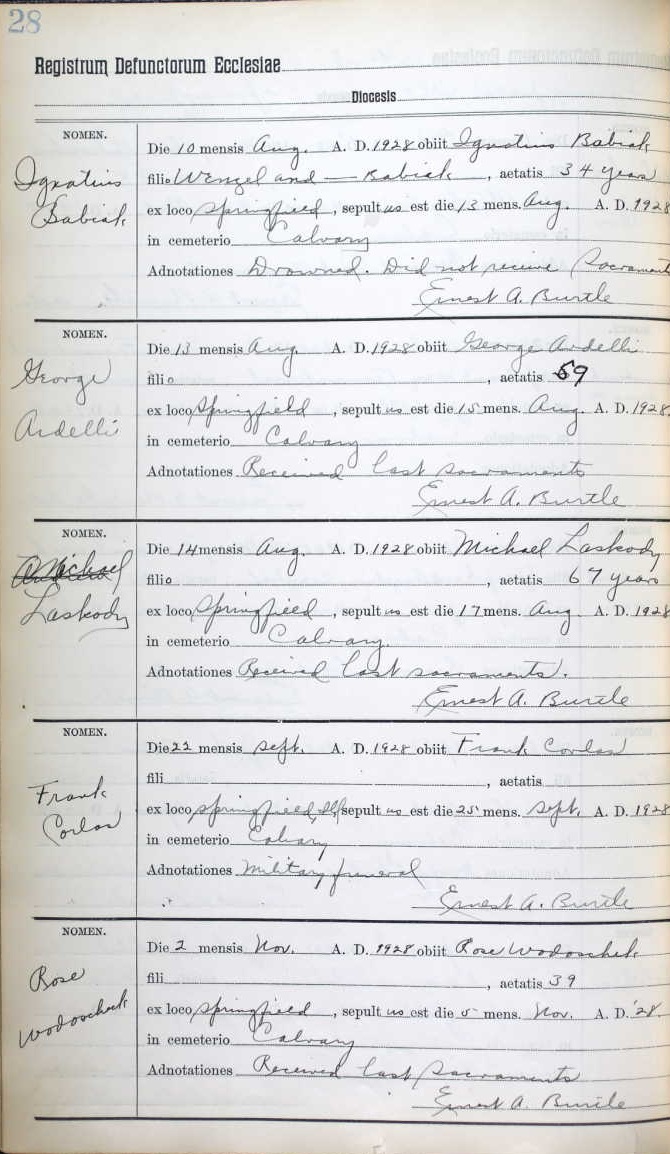 28
Registrum Defunctorum Ecclesiae
Diocesis
NOMEN.
Ignatius
Babiak
Die 10 mensis Aug. A. D. 1928 obiit Ignatius Babiak
filio Wenzel and — Babiak, aetatis 34 years
ex loco Springfield, sepultus est die 13 mens. Aug. A. D. 1928
in cemeterio Calvary
Adnotationes Drowned. Did not receive Sacrament
Ernest A. Burtle
NOMEN.
George
Ardelli
Die 13 mensis Aug. A. D. 1928 obiit George Ardelli
filio , aetatis 59
ex loco Springfield, sepultus est die 15 mens. Aug. A. D. 1928.
in cemeterio Calvary
Adnotationes Received last sacraments
Ernest A. Burtle
NOMEN.
Michael
Laskody
Die 14 mensis Aug. A. D. 1928 obiit Michael Laskody
filio , aetatis 67 years
ex loco Springfield, sepultus est die 17 mens. Aug A. D. 1928
in cemeterio Calvary.
Adnotationes Received last sacraments.
Ernest A. Burtle
NOMEN.
Frank
Corlas
Die 22 mensis Sept. A. D. 1928 obiit Frank Corlas
fili , aetatis
ex loco Springfield, Ill, sepultus est die 25 mens. Sept. A. D. 1928
in cemeterio Calvary
Adnotationes Military funeral
Ernest A. Burtle
NOMEN.
Rose
Wodoschek
Die 2 mensis Nov. A. D. 1928 obiit Rose Wodoschek
fili , aetatis 39
ex loco Springfield, sepultus est die 5 mens. Nov. A. D. '28.
in cemeterio Calvary
Adnotationes Received last Sacraments
Ernest A. Burtle